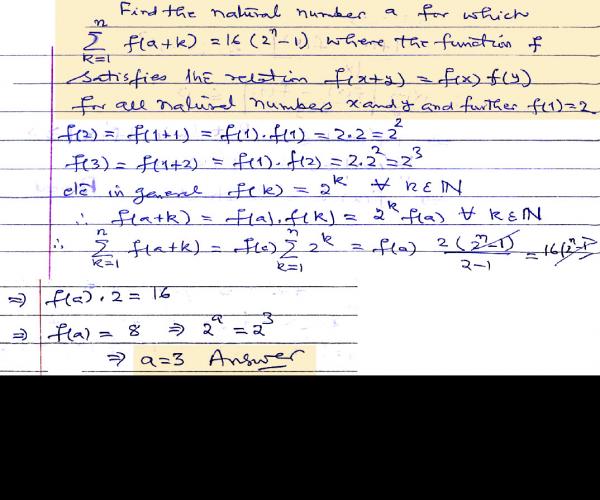 Find the natural number a for which
n
∑ f(a+k) = 16 (2ⁿ-1) where the function f
k=1
satisfies the relation f(x+y) = f(x) f(y)
for all natural numbers x and y and further f(1)=2
f(2) = f(1+1) = f(1)·f(1) = 2·2 = 2²
f(3) = f(1+2) = f(1)·f(2) = 2·2² = 2³
etc in general f(k) = 2ᵏ ∀ k∈ℕ
∴ f(a+k) = f(a)·f(k) = 2ᵏ f(a) ∀ k∈ℕ
∴ ∑ₖ₌₁ⁿ f(a+k) = f(a) ∑ₖ₌₁ⁿ 2ᵏ = f(a) 2(2ⁿ-1)/2-1 = 16(2ⁿ-1)
⇒ f(a)·2 = 16
⇒ f(a) = 8 ⇒ 2ᵃ = 2³
⇒ a=3 Answer